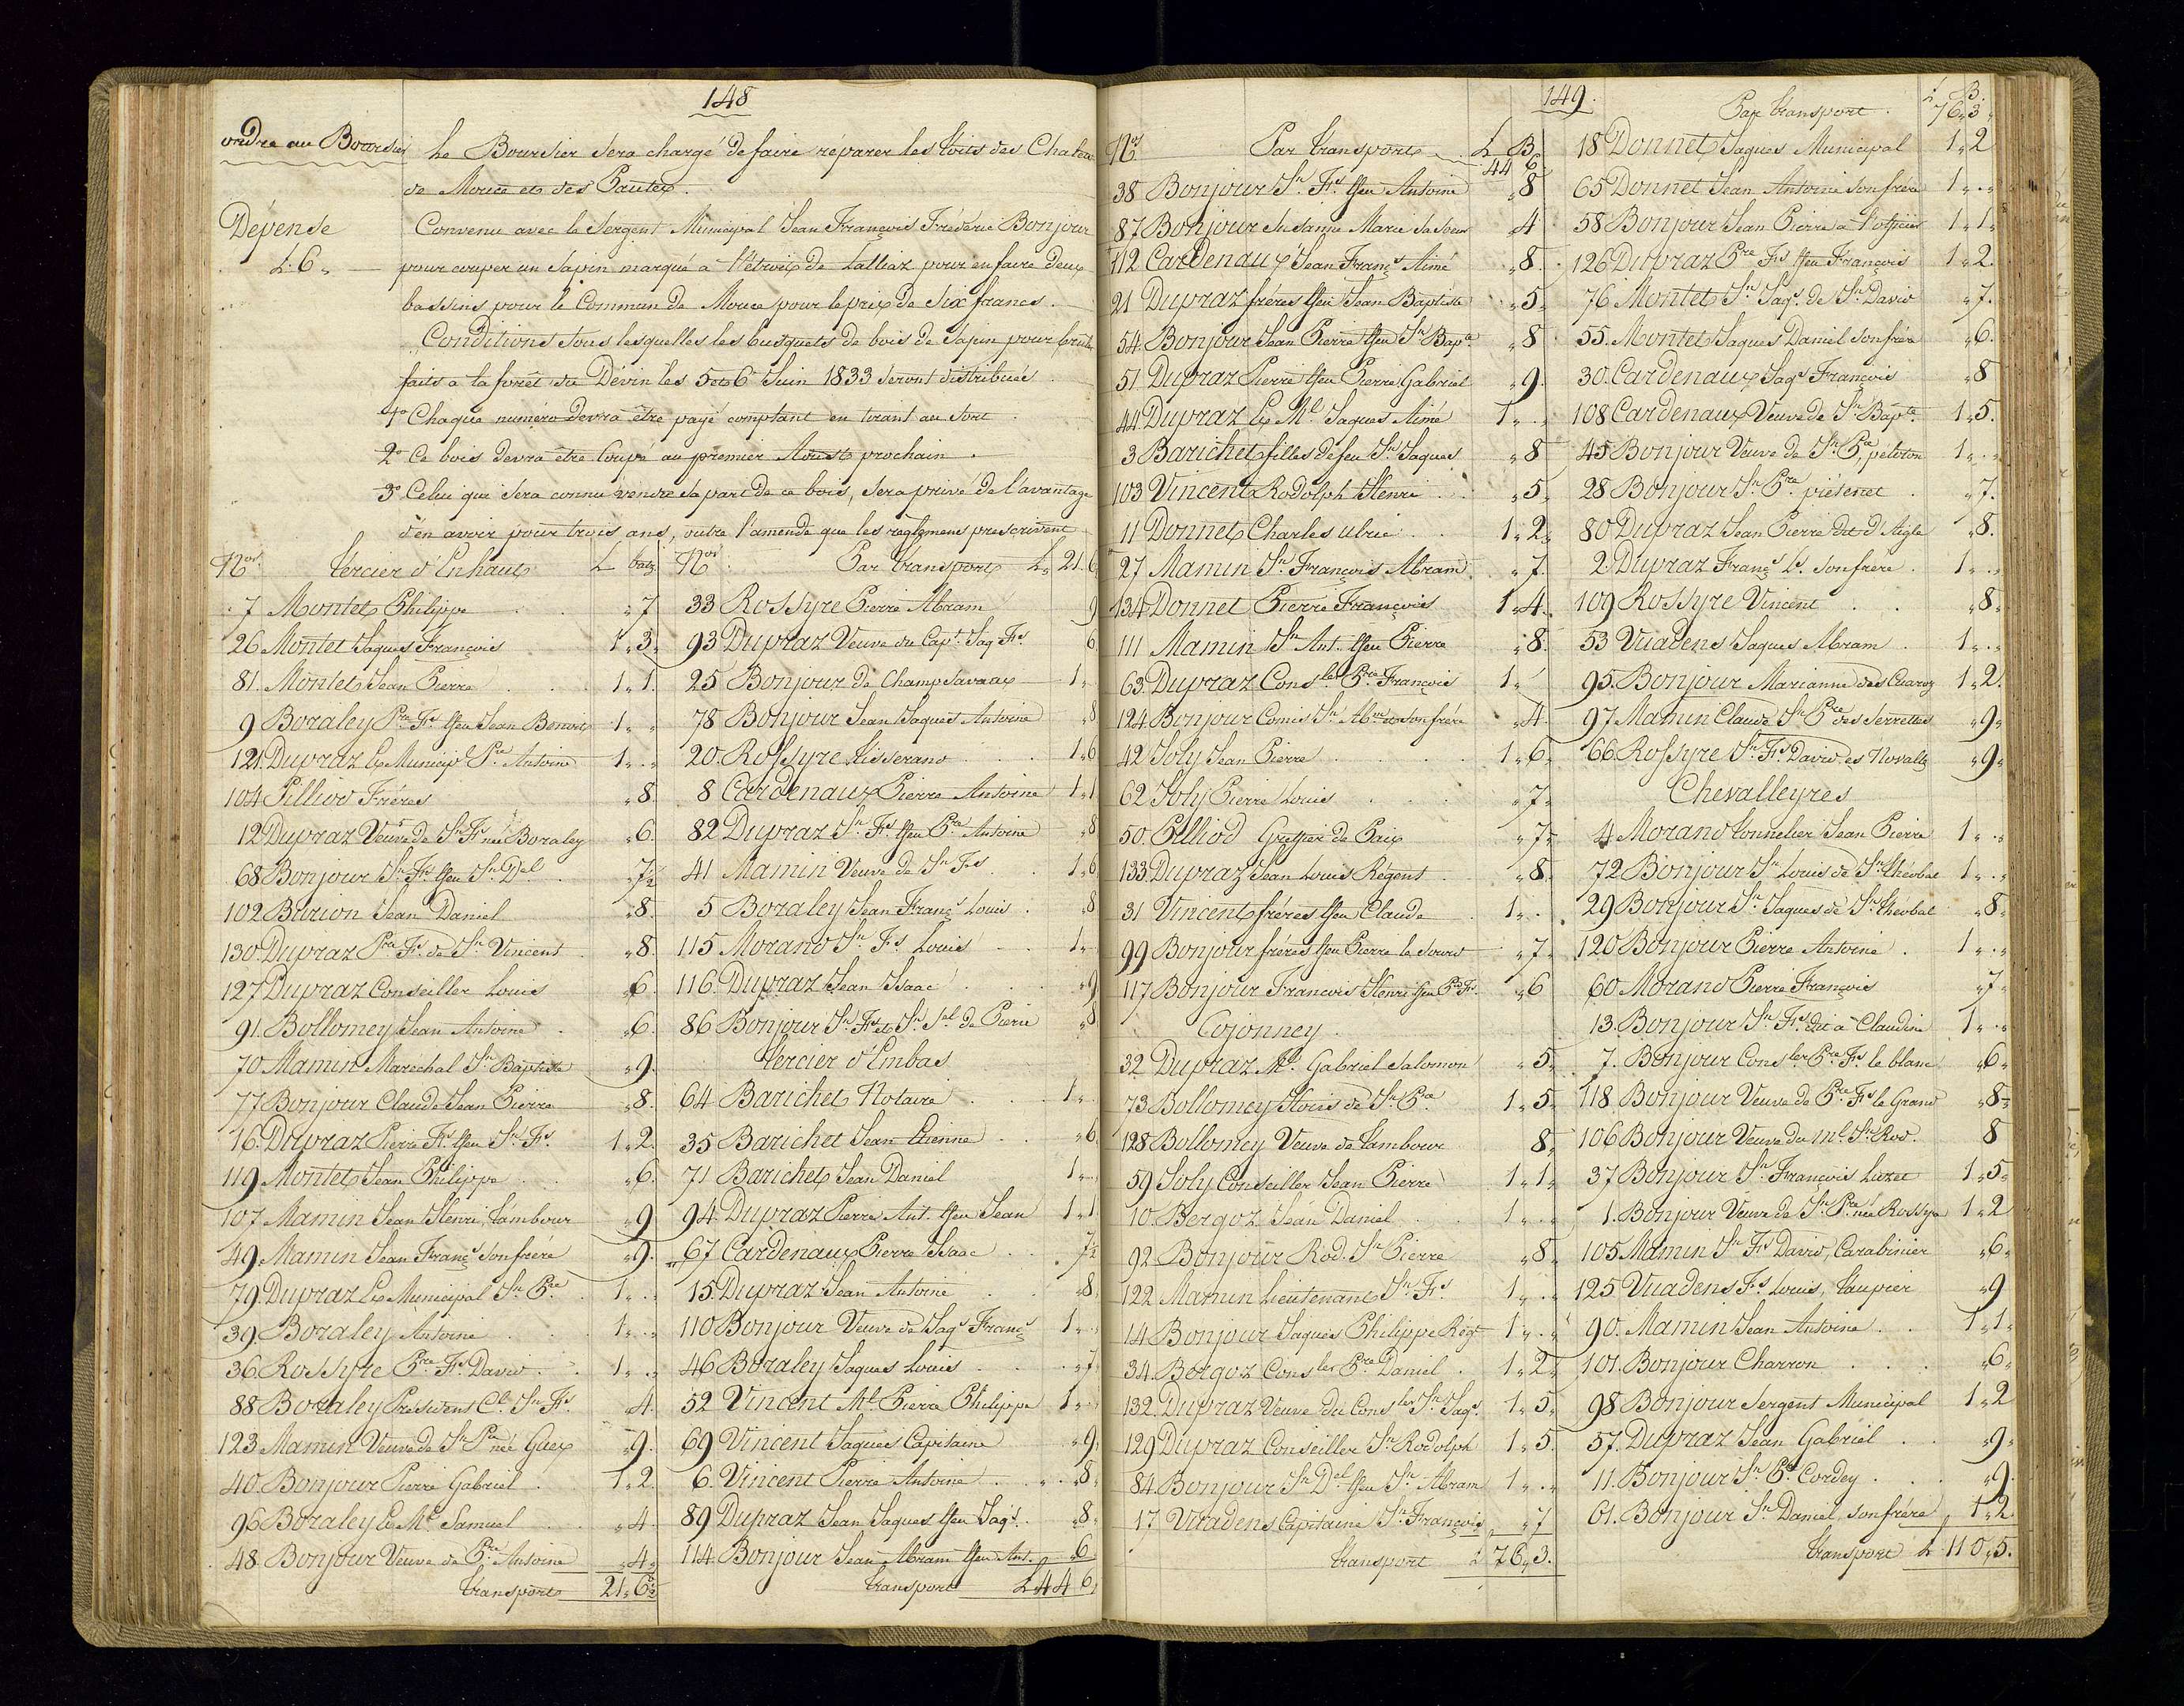 148
ordre au Boursier
Le Boursier sera chargé de faire réparer les toits des Chalets
de Mouce et des Pautex.
Dépense
L. 6 „
Convenu avec le Sergent Municipal Jean François Fréderic Bonjour
pour couper un sapin marqué à l'étroit de Lalliaz pour en faire deux
bassins pour le Commun de Mouce pour le prix de Six francs.
Conditions sous lesquelles les busquets de bois de sapin pour
faits a la forêt du Dévin les 5 et 6 Juin 1833 seront distribués.
1º Chaque numéro devra être payé comptant en tirant au sort.
2º Ce bois devra être Coupé au premier Aoust prochain.
3º Celui qui sera connu vendre sa part de ce bois, sera privé de l'avantage
d'en avoir pour trois ans, outre l'amende que les réglemens prescrivent
Nos. Tercier d'Enhaut L batz
7 Montet Philippe „ 7
26 Montet Jaques François 1„3„
81. Montet Jean Pierre 1„1.
9 Boraley Pre Fs ffeu Jean Benoit 1„ „
121. Dupraz Le Municipl Pre Antoine 1„ „
104 Pilliod Fréres „8.
12 Dupraz Veuve de Jn Fs née Boraley „6.
68 Bonjour Jn Fs ffeu Jn Del „7½
102 Burion Jean Daniel „8.
130. Dupraz Pre Fs de Jn Vincent „8.
127 Dupraz Conseiller Louis „6.
91. Bollomey Jean Antoine „6.
70 Mamin Maréchal Jn Baptiste „9.
77 Bonjour Claude Jean Pierre „8.
16. Dupraz Pierre Fs ffeu Jn Fs 1„2.
119 Montet Jean Philippe „6.
107 Mamin Jean Henri, tambour „9
49. Mamin Jean Françs son frére „9.
79. Dupraz Le Municipal Jn Pre 1„ „
39 Boraley Antoine 1„ „
36 Rossyre Pre Fs David 1„ „
88 Boraley President Cl. Jn Fs „4.
123 Mamin Veuve de Jn Pre née Guex „9.
40. Bonjour Pierre Gabriel 1„2.
96 Boraley Le Ml Samuel „4.
48. Bonjour Veuve de Pre Antoine „4„
transport 21„6½
Nos. Par transport L„ 21.6
33 Rossyre Pierre Abram 9
93 Dupraz Veuve du Capt. Jaq Fs 6
25 Bonjour de Champsavaux 1„
78 Bonjour Jean Jaques Antoine „8
20. Rossyre tisserand 1„6
8 Cardenaux Pierre Antoine 1„1
82 Dupraz Jn Fs ffeu Pre Antoine „8
41 Mamin Veuve de Jn Fs 1„6
5 Boraley Jean Françs Louis „8
115 Morand Jn Fs Louis 1„
116. Dupraz Jean Isaac „9
86 Bonjour Jn Fs et Jn Jel de Pierre „8
Tercier d'Embas
64 Barichet Notaire 1„
35 Barichet Jean Etienne „6
71 Barichet Jean Daniel 1„
94. Dupraz Pierre Ant. ffeu Jean 1„1
67 Cardenaux Pierre Isaac 7½
15. Dupraz Jean Antoine „8
110 Bonjour Veuve de Jaqs Françs 1„
46 Boraley Jaques Louis „7
52 Vincent Ml Pierre Philippe 1„
69 Vincent Jaques Capitaine „9
6. Vincent Pierre Antoine „8„
89 Dupraz Jean Jaques ffeu Jaqs. „8„
114. Bonjour Jean Abram ffeu Ant. „6
transport L„44 6„
149.
Nos Par transport L B
44 6.
38 Bonjour Jn Fs ffeu Antoine „8
87 Bonjour Susanne Marie sa soeur „4
112 Cardenaux Jean Françs Aimé „8.
21 Dupraz frères ffeu Jean Baptiste „5„
54. Bonjour Jean Pierre ffeu Jn Bapte „8
51. Dupraz Pierre ffeu Pierre Gabriel „9.
44 Dupraz Le Ml Jaques Aimé 1„ „
3 Barichet filles de feu Jn Jaques „8
103 Vincent Rodolph Henri „5„
11 Donnet Charles Ulric 1„2„
27 Mamin Jn François Abram „7.
134 Donnet Pierre François 1„4.
111 Mamin Jn Ant. ffeu Pierre „8.
63. Dupraz Consler Pre François 1„
124. Bonjour Comis Jn Abm et son frére „4.
42 Joly Jean Pierre 1„6„
62 Joly Pierre Louis „7„
50. Pilliod Greffier de Paix „7„
133. Dupraz Jean Louis Régent „8.
31 Vincent fréres ffeu Claude 1„ .
99 Bonjour fréres ffeu Pierre le sourd „7„
117 Bonjour Francois Henri ffeu Pre Fs. „6
Cojonney.
32 Dupraz Ml Gabriel Salomon „5„
73. Bollomey Louis de Jn Pre 1„5„
128 Bollomey Veuve de tambour 8„
59 Joly Conseiller Jean Pierre 1„1„
10. Bergoz Jean Daniel 1„ „
92 Bonjour Rod. Jn Pierre „8„
122 Mamin Lieutenant Jn Fs 1„ „
14 Bonjour Jaques Philippe Régt 1„ „
34. Bergoz Consler Pre Daniel 1„2„
132. Dupraz Veuve du Consler Jn Jaqs. 1„5„
129 Dupraz Conseiller Jn Rodolph 1„5.
84. Bonjour Jn Del ffeu Jn Abram 1„ „
17 Vuadens Capitaine Jn François „7
transport L 76„3.
Par transport L B.
76„3„
18 Donnet Jaques Municipal 1„2
65 Donnet Jean Antoine son frére 1„ „
58 Bonjour Jean Pierre a l'officier 1„1„
126 Dupraz Pre Fs ffeu François 1„2.
76 Montet Jn Jaqs. de Jn David „7.
55. Montet Jaques Daniel son frére „6.
30. Cardenaux Jaqs François „8
108 Cardenaux Veuve de Jn Bapte 1„5.
45 Bonjour Veuve de Jn Pre, peloton 1„ „
28 Bonjour Jn Pre piésenet „7.
80 Dupraz Jean Pierre dit d'Aigle „8.
2. Dupraz Françs Ls. son frére 1„ „
109 Rossyre Vincent „8„
53 Vuadens Jaques Abram 1„ „
95. Bonjour Marianne des Cuaroz 1„2.
97 Mamin Claude Jn Pre des Serrettes „9„
66. Rossyre Jn Fs David, es Novalles „9„
Chevalleyres
4 Morand tonnelier Jean Pierre 1„ „
72 Bonjour Jn Louis de Jn théobal 1„ „
29 Bonjour Jn Jaques de Jn théobal „8„
120 Bonjour Pierre Antoine 1„ „
60 Morand Pierre François „7„
13. Bonjour Jn Fs. dit à Claudine 1„ „
7. Bonjour Consler Pre Fs le blanc „6„
118 Bonjour Veuve de Pre Fs le Grand „8„
106 Bonjour Veuve du ml Jn Rod. 8
37 Bonjour Jn François Luzet 1„5„
1. Bonjour Veuve de Jn Pre née Rossyre 1„2
105 Mamin Jn Fs David, Carabinier „6„
125 Vuadens Fs Louis, taupier „9
90. Mamin Jean Antoine 1„1„
101. Bonjour Charron „6„
98 Bonjour Sergent Municipal 1„2
57. Dupraz Jean Gabriel „9„
11. Bonjour Jn Pre Cordey „9.
61. Bonjour Jn Daniel, son frére 1„2
transport L. 110„5.